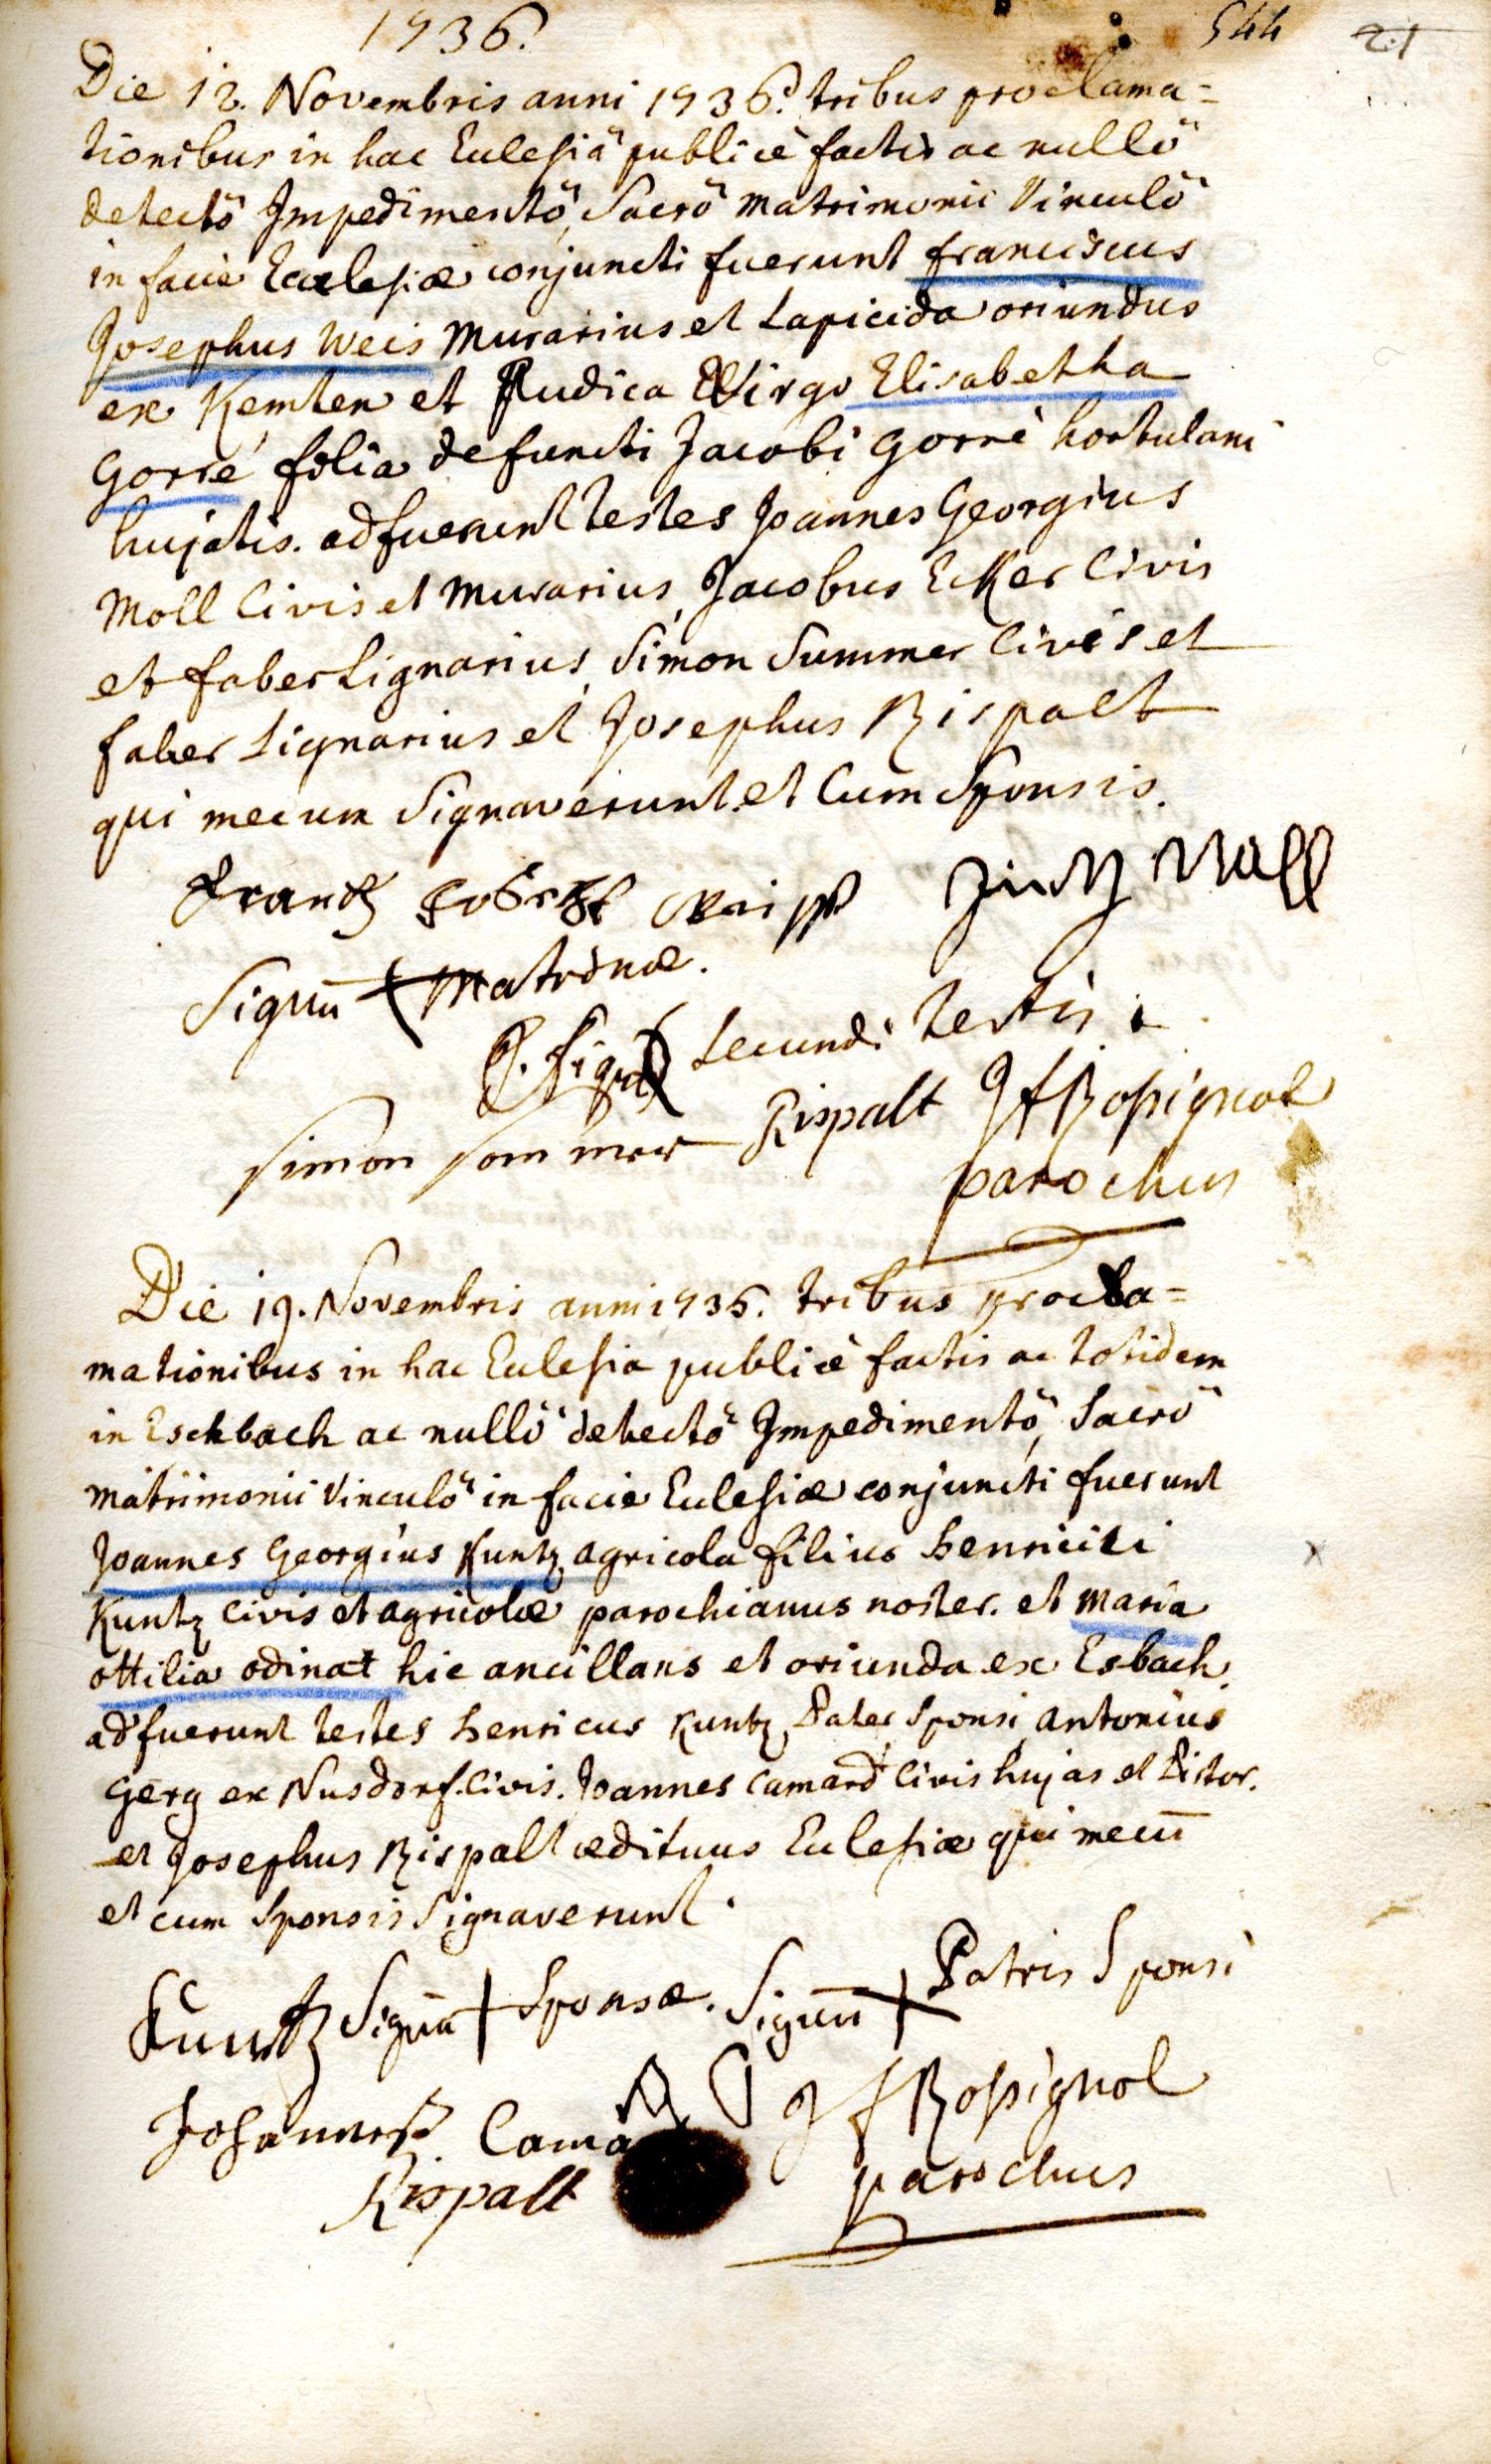 1736.
544 21
Die 12. Novembris anni 1736. tribus proclama=
tionibus in hac Eclesiâ publicè factis ac nullô
detectô Impedimentô, Sacrô Matrimonii Vinculô
in facie Ecclesiæ conjuncti fuerunt franciscus
Josephus Weis Murarius et Lapicida oriundus
ex Kemten et Pudica Virgo Elisabetha
Gorré filia defuncti Jacobi Gorré hortulani
hujatis. adfuerunt testes Joannes Georgius
Moll Civis et Murarius, Jacobus Ecker Civis
et faber Lignarius, Simon Summer Civis et
faber Lignarius et Josephus Rispalt
qui mecum Signaverunt et Cum Sponsis.
Frantz Weiss Moll
Signū + Matronæ.
Signū secundi testis
simon sommer Rispalt JfRossignol
parochus
Die 19. Novembris anni 1736. tribus procla=
mationibus in hac Eclesia publicè factis ac totidem
in Eschbach ac nullô detectô Impedimentô, Sacrô
Matrimonii Vinculô in facie Eclesiæ conjuncti fuerunt
Joannes Georgius Kuntz agricola filius henrici
Kuntz Civis et agricolæ parochianus noster. et Maria
ottilia odinat hic ancillans et oriunda ex Esbach.
adfuerunt testes henricus Kuntz Pater Sponsi, antonius
Gerg ex Nusdorf Civis. Joannes Camard Civis hujas et Pistor.
et Josephus Rispalt ædituus Eclesiæ qui mecū
et cum Sponsis Signaverunt.
Kuntz Signū + Sponsæ. Signū + Patris Sponsi
Johannes JfRossignol
Rispalt parochus